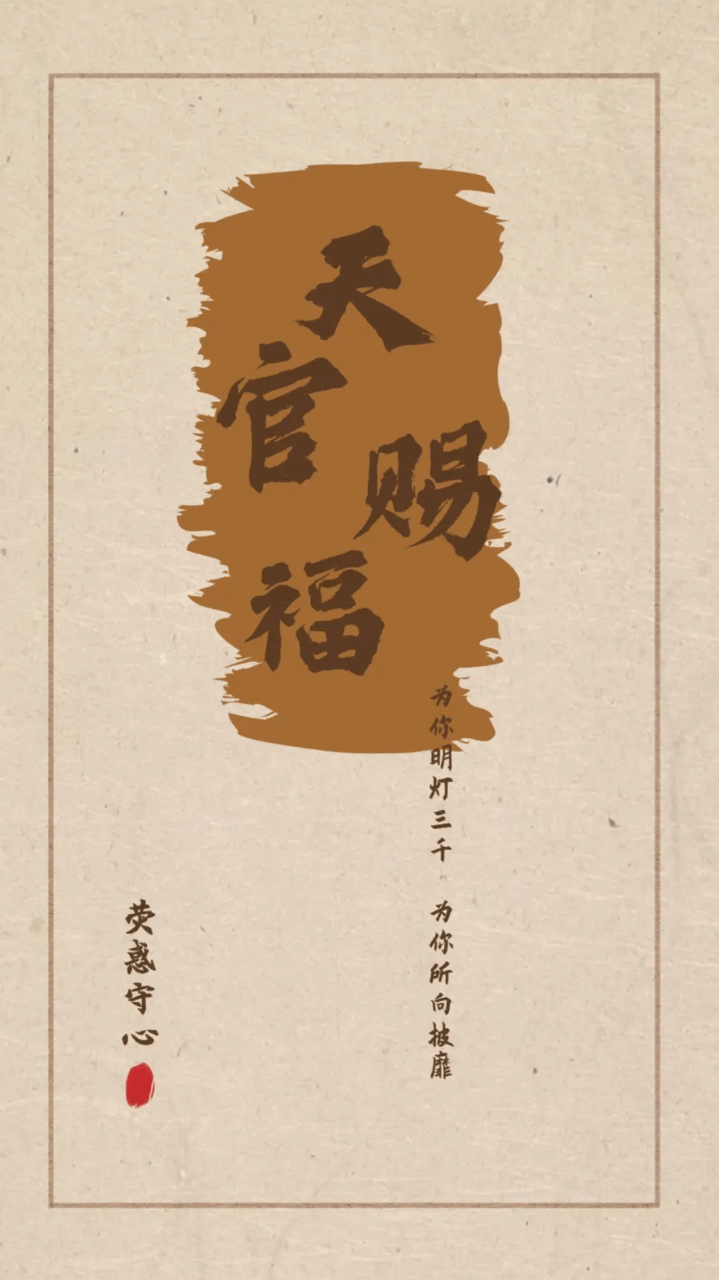 天官赐福
为你明灯三千 为你所向披靡
荧惑守心